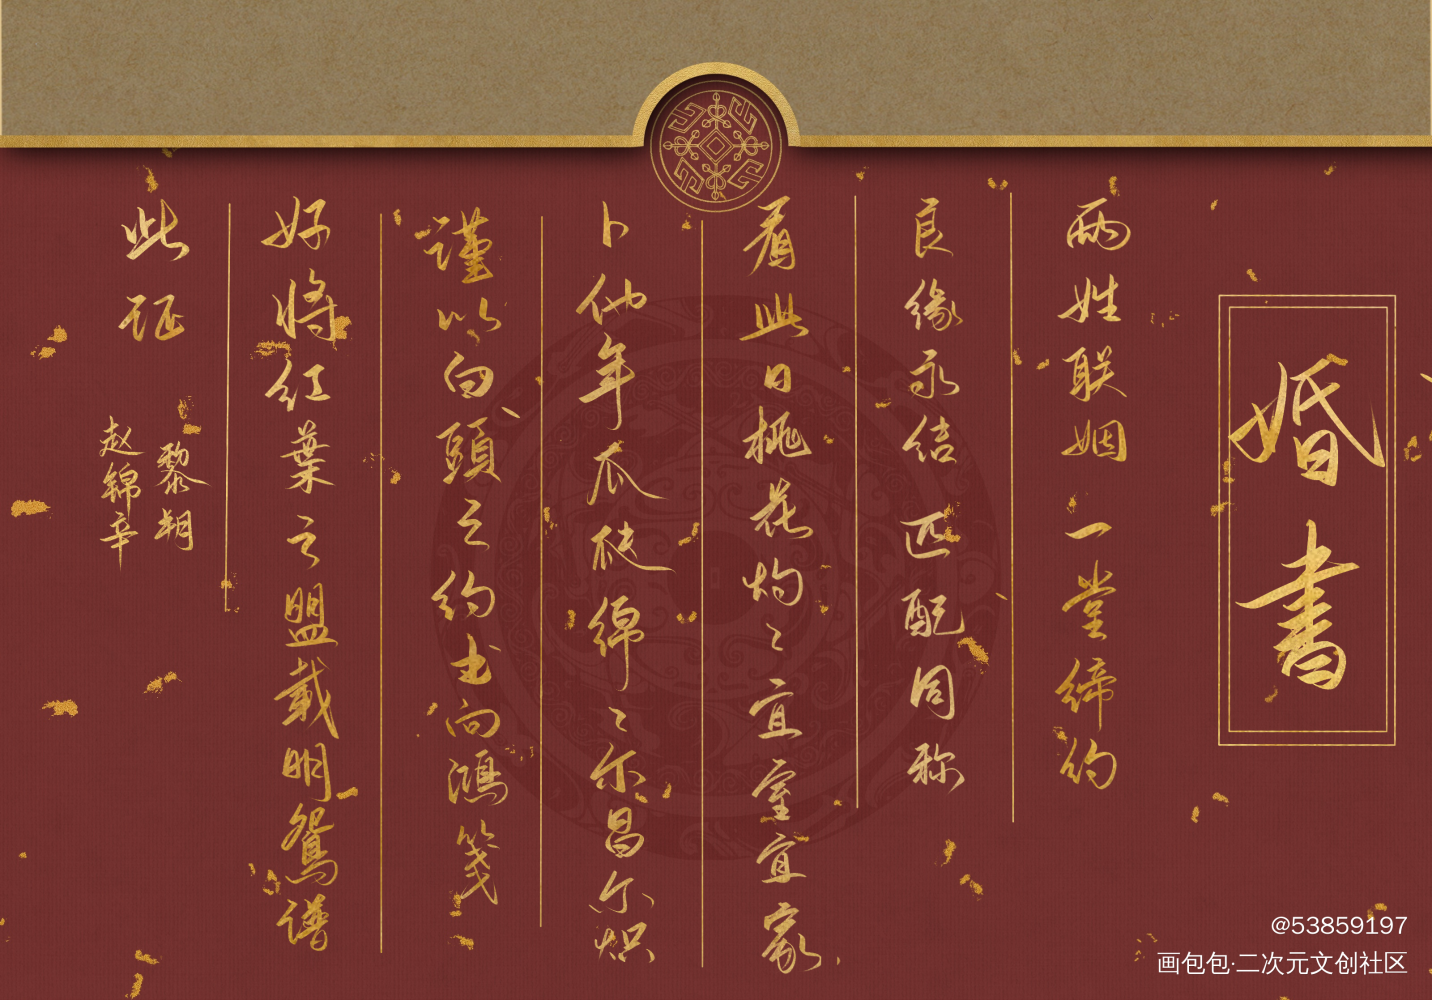 婚書
兩姓联姻一堂缔约
良缘永结匹配同称
看此日桃花灼灼宜室宜家
卜他年瓜瓞绵绵尔昌尔炽
謹以白頭之约书向鴻笺
好將红葉之盟载明鸳谱
此证
黎朔
赵锦辛
@53859197
画包包·二次元文创社区